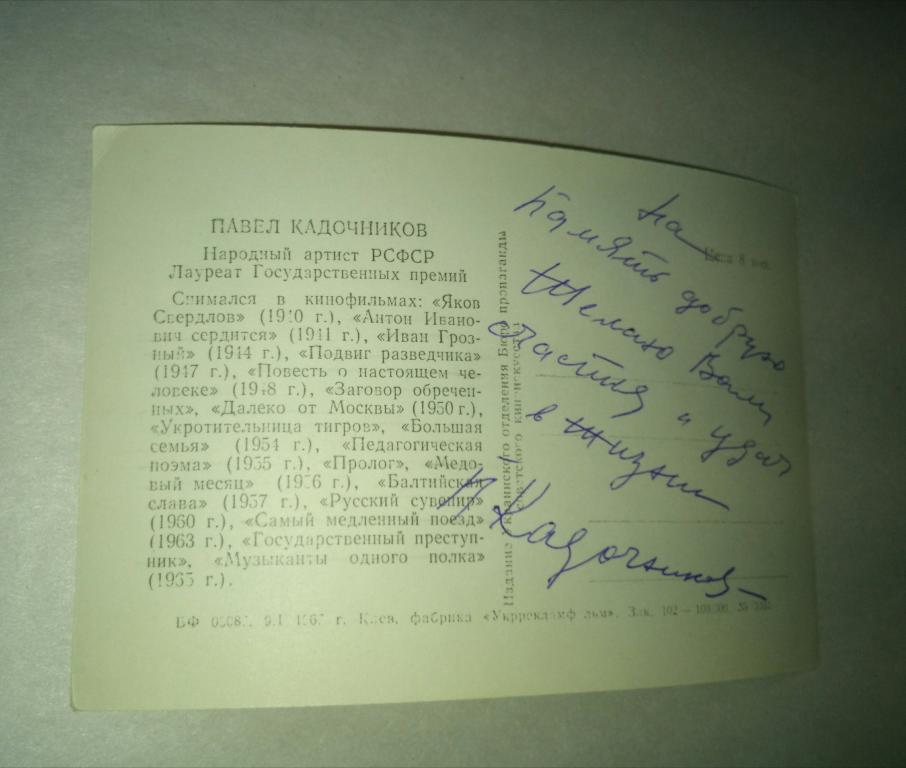 ПАВЕЛ КАДОЧНИКОВ
Народный артист РСФСР
Лауреат Государственных премий
Снимался в кинофильмах: «Яков
Свердлов» (1940 г.), «Антон Ивано-
вич сердится» (1941 г.), «Иван Гроз-
ный» (1944 г.), «Подвиг разведчика»
(1947 г.), «Повесть о настоящем че-
ловеке» (1948 г.), «Заговор обречен-
ных», «Далеко от Москвы» (1950 г.),
«Укротительница тигров», «Большая
семья» (1954 г.), «Педагогическая
поэма» (1955 г.), «Пролог», «Медо-
вый месяц» (1956 г.), «Балтийская
слава» (1957 г.), «Русский сувенир»
(1960 г.), «Самый медленный поезд»
(1963 г.), «Государственный преступ-
ник», «Музыканты одного полка»
(1965 г.).
БФ г. Киев, фабрика «Укррекламфильм». Зак. 102 — 100.000.
Издание Украинского отделения Бюро пропаганды
советского киноискусства
Цена 8 коп.
На
память добрую
Желаю Вам
счастья и удач
в жизни
П Кадочников